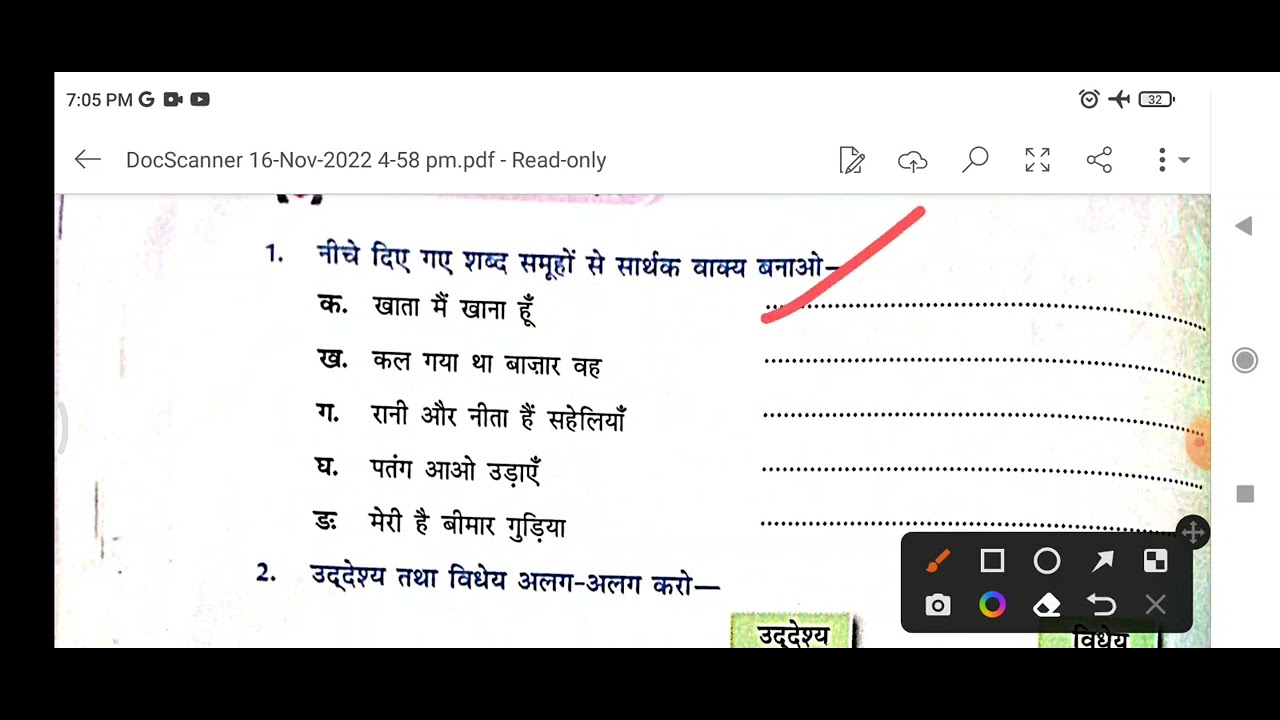 7:05 PM
32
DocScanner 16-Nov-2022 4-58 pm.pdf - Read-only
1. नीचे दिए गए शब्द समूहों से सार्थक वाक्य बनाओ–
क. खाता मैं खाना हूँ
ख. कल गया था बाज़ार वह
ग. रानी और नीता हैं सहेलियाँ
घ. पतंग आओ उड़ाएँ
ङः मेरी है बीमार गुड़िया
2. उद्‌देश्य तथा विधेय अलग-अलग करो—
उद्‌देश्य विधेय